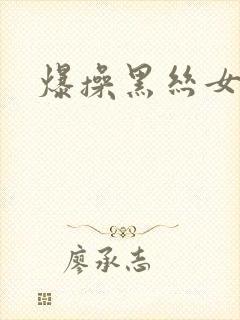 爆操黑丝女
廖承志